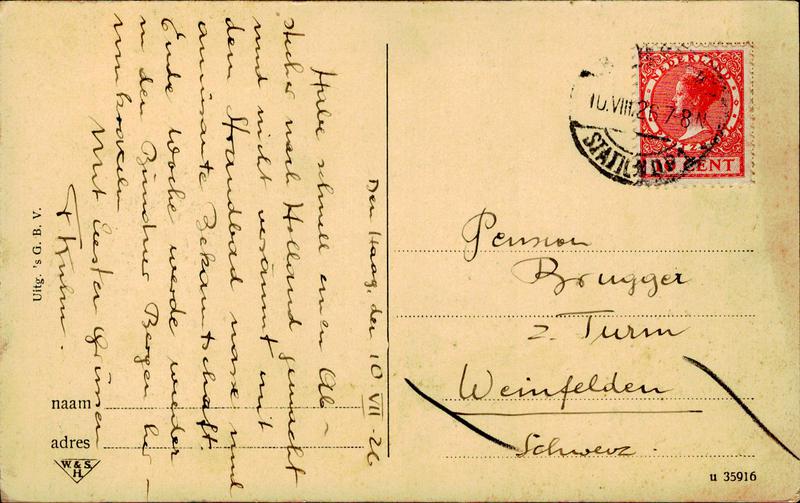 Den Haag, den 10 VII - 26
Habe schnell einen Ab-
stecher nach Holland gemacht
und nicht versäumt mit
dem Strandbad nasse und
amüsante Bekanntschaft.
Ende Woche werde wieder
in den Bündner Bergen her-
umkraxeln
Mit besten Grüssen
F Kuhn.
Uitg. 's G. B. V.
naam
adres
W. & S.
H.
NEDERLAND
10.VIII.26 7-8 N
STATION
CENT
Pension
Brugger
z. Turm
Weinfelden
Schweiz.
u 35916